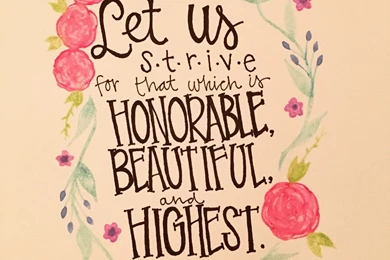 Let us
s·t·r·i·v·e
for that which is
HONORABLE,
BEAUTIFUL,
and
HIGHEST.